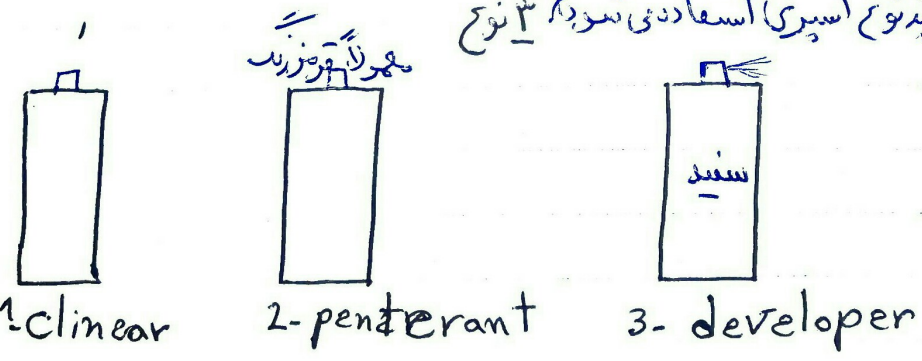 نوع اسپری استفاده می شود 3 نوع
معمولاً قرمز رنگ
سفید
1-clinear 2-penterant 3- developer